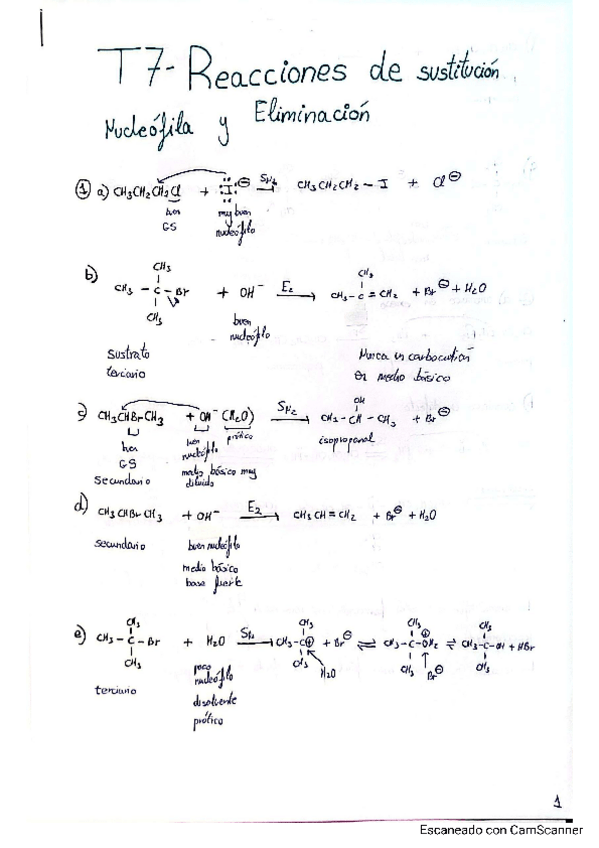 T7- Reacciones de sustitución
Nucleófila y Eliminación
① a) CH3CH2CH2Cl + I⊖ SN2 → CH3CH2CH2 – I + Cl⊖
buen GS
muy buen nucleófilo
b) CH3 – C – Br + OH⁻ E2 → CH3 – C = CH2 + Br⊖ + H2O
CH3
CH3
CH3
buen nucleófilo
Sustrato terciario
Nunca un carbocatión en medio básico
c) CH3CHBrCH3 + OH⁻ (H2O) SN2 → CH3 – CH – CH3 + Br⊖
OH
buen GS
buen nucleófilo
prótico
isopropanol
secundario
medio básico muy diluido
d) CH3CHBrCH3 + OH⁻ E2 → CH3CH = CH2 + Br⊖ + H2O
secundario
buen nucleófilo
medio básico
base fuerte
e) CH3 – C – Br + H2O SN1 → CH3 – C⊕ + Br⊖ ⇌ CH3 – C – OH2 ⇌ CH3 – C – OH + HBr
CH3
CH3
CH3
CH3
CH3
CH3
CH3
CH3
⊕
H2O
Br⊖
terciario
poco nucleófilo
disolvente prótico
1
Escaneado con CamScanner